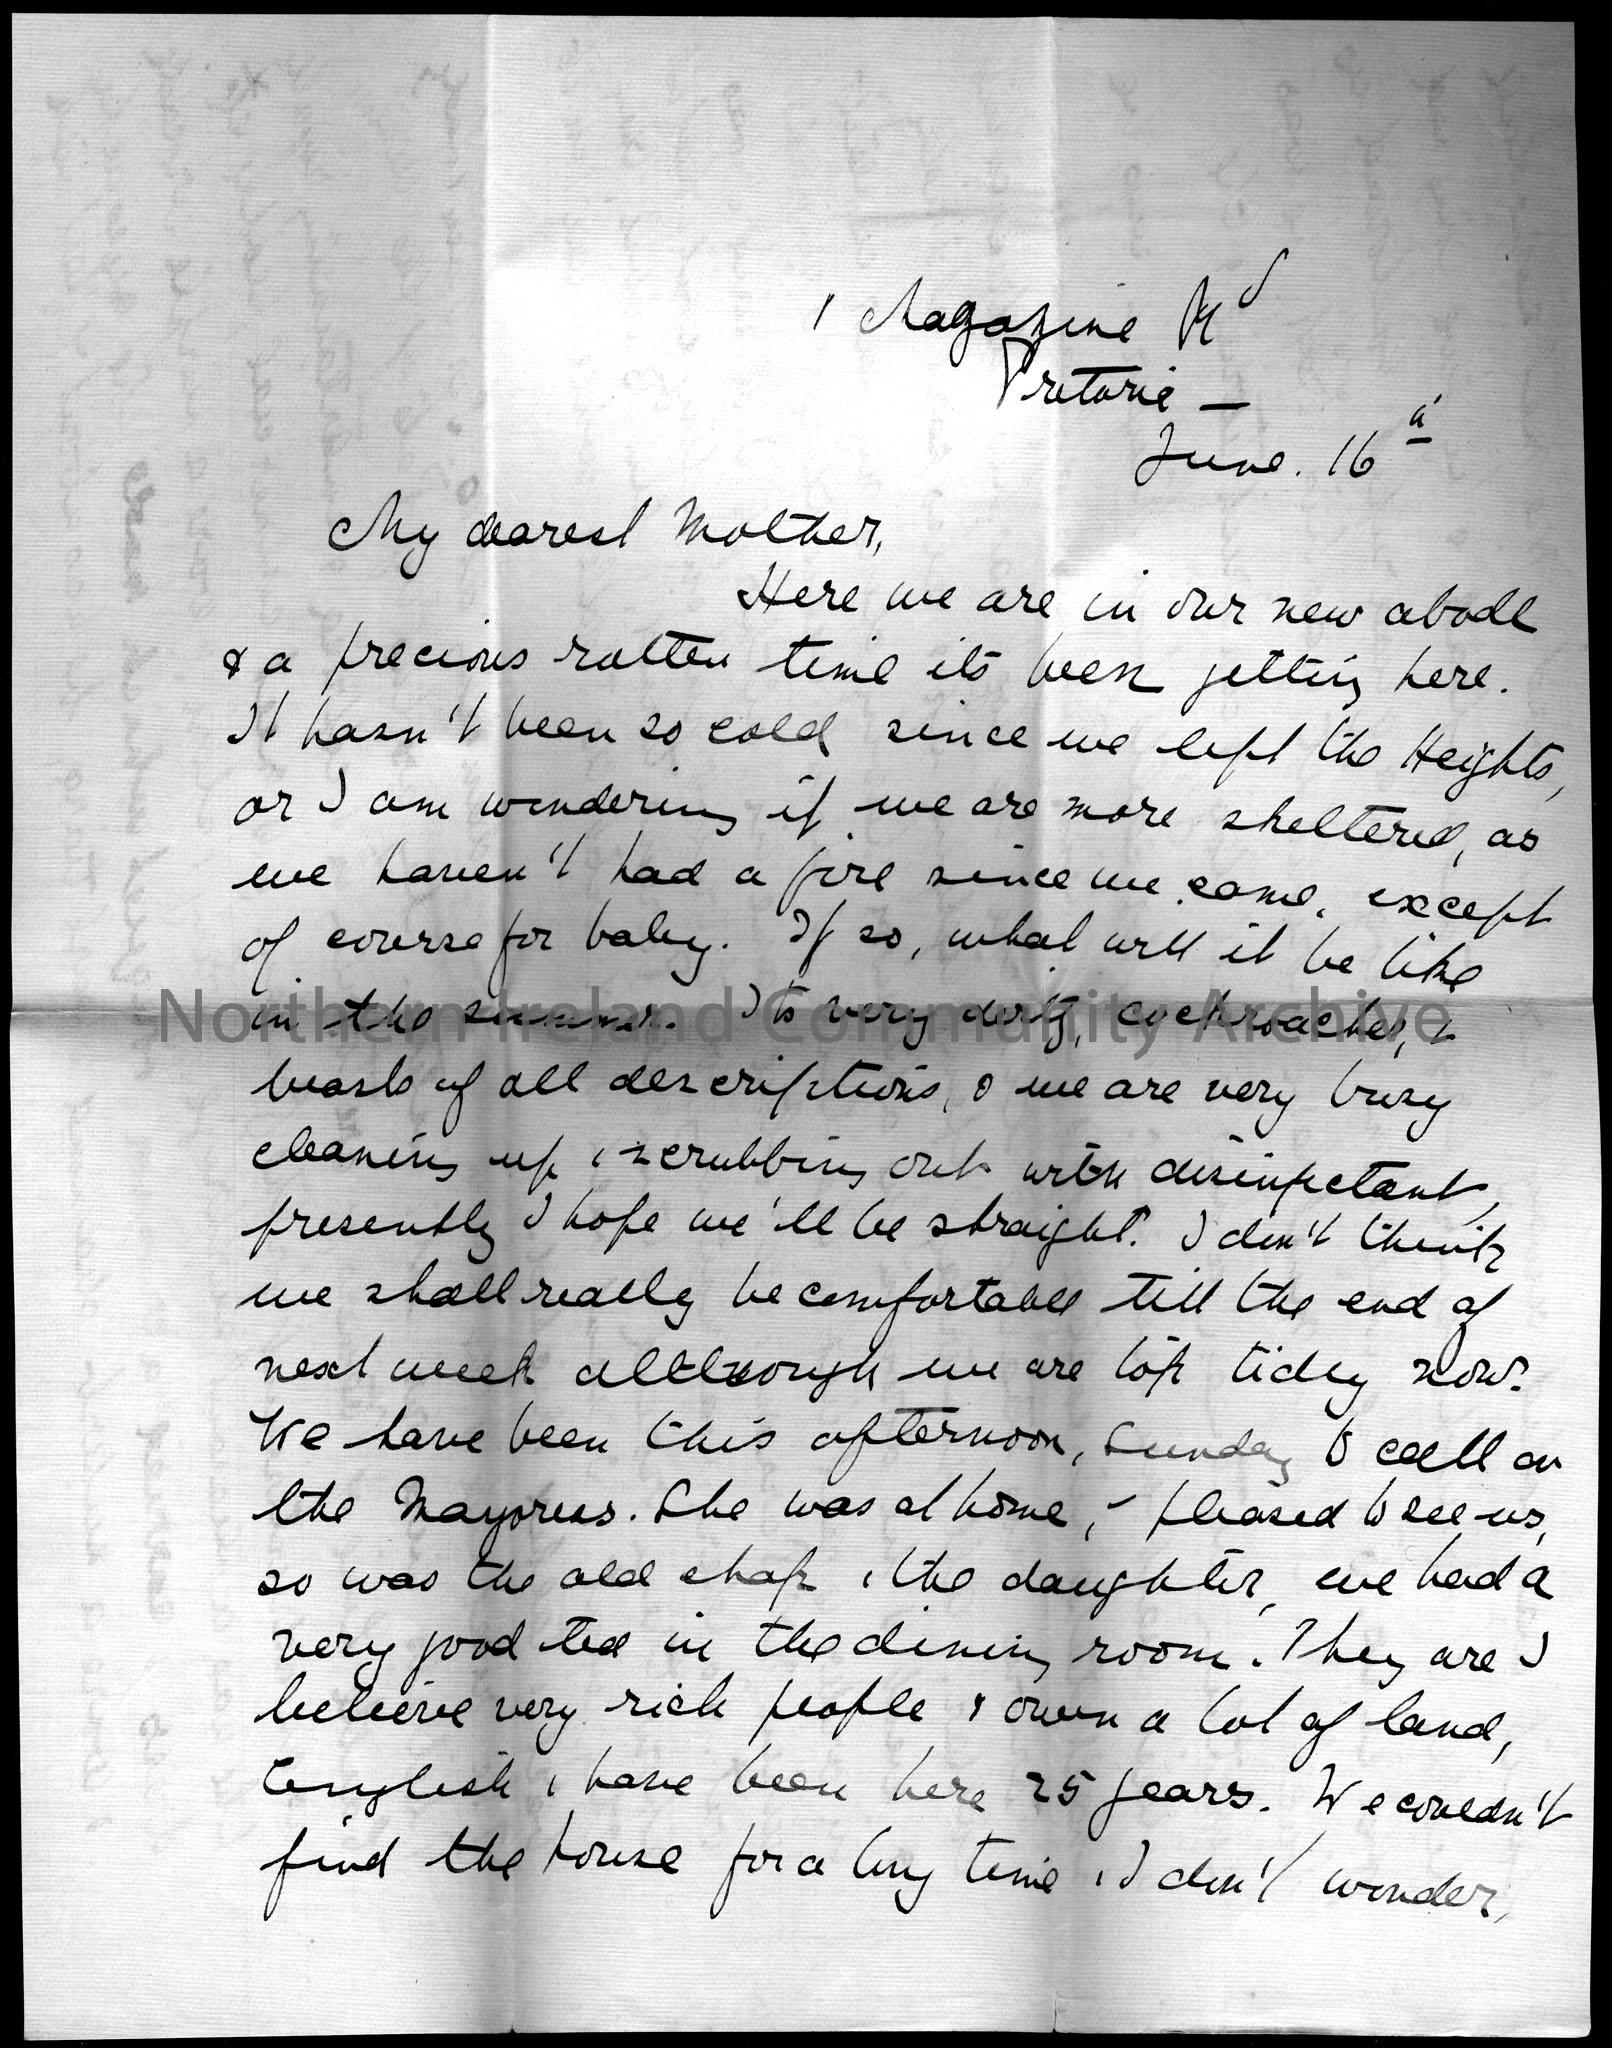 1 Magazine Rd
Pretoria —
June. 16th
My dearest Mother,
Here we are in our new abode
& a precious rotten time its been getting here.
It hasn't been so cold since we left the Heights,
or I am wondering if we are more sheltered, as
we haven't had a fire since we came, except
of course for baby. If so, what will it be like
in the summer. Its very dirty, cockroaches, &
beasts of all descriptions, & we are very busy
cleaning up & scrubbing out with disinfectant,
presently I hope we'll be straight. I don't think
we shall really be comfortable till the end of
next week although we are top tidy now.
We have been this afternoon, Sunday to call on
the Mayoress. She was at home, & pleased to see us,
so was the old chap & the daughter, we had a
very good tea in the dining room. They are I
believe very rich people & own a lot of land,
English & have been here 25 years. We couldn't
find the house for a long time & I don't wonder,
Northern Ireland Community Archive